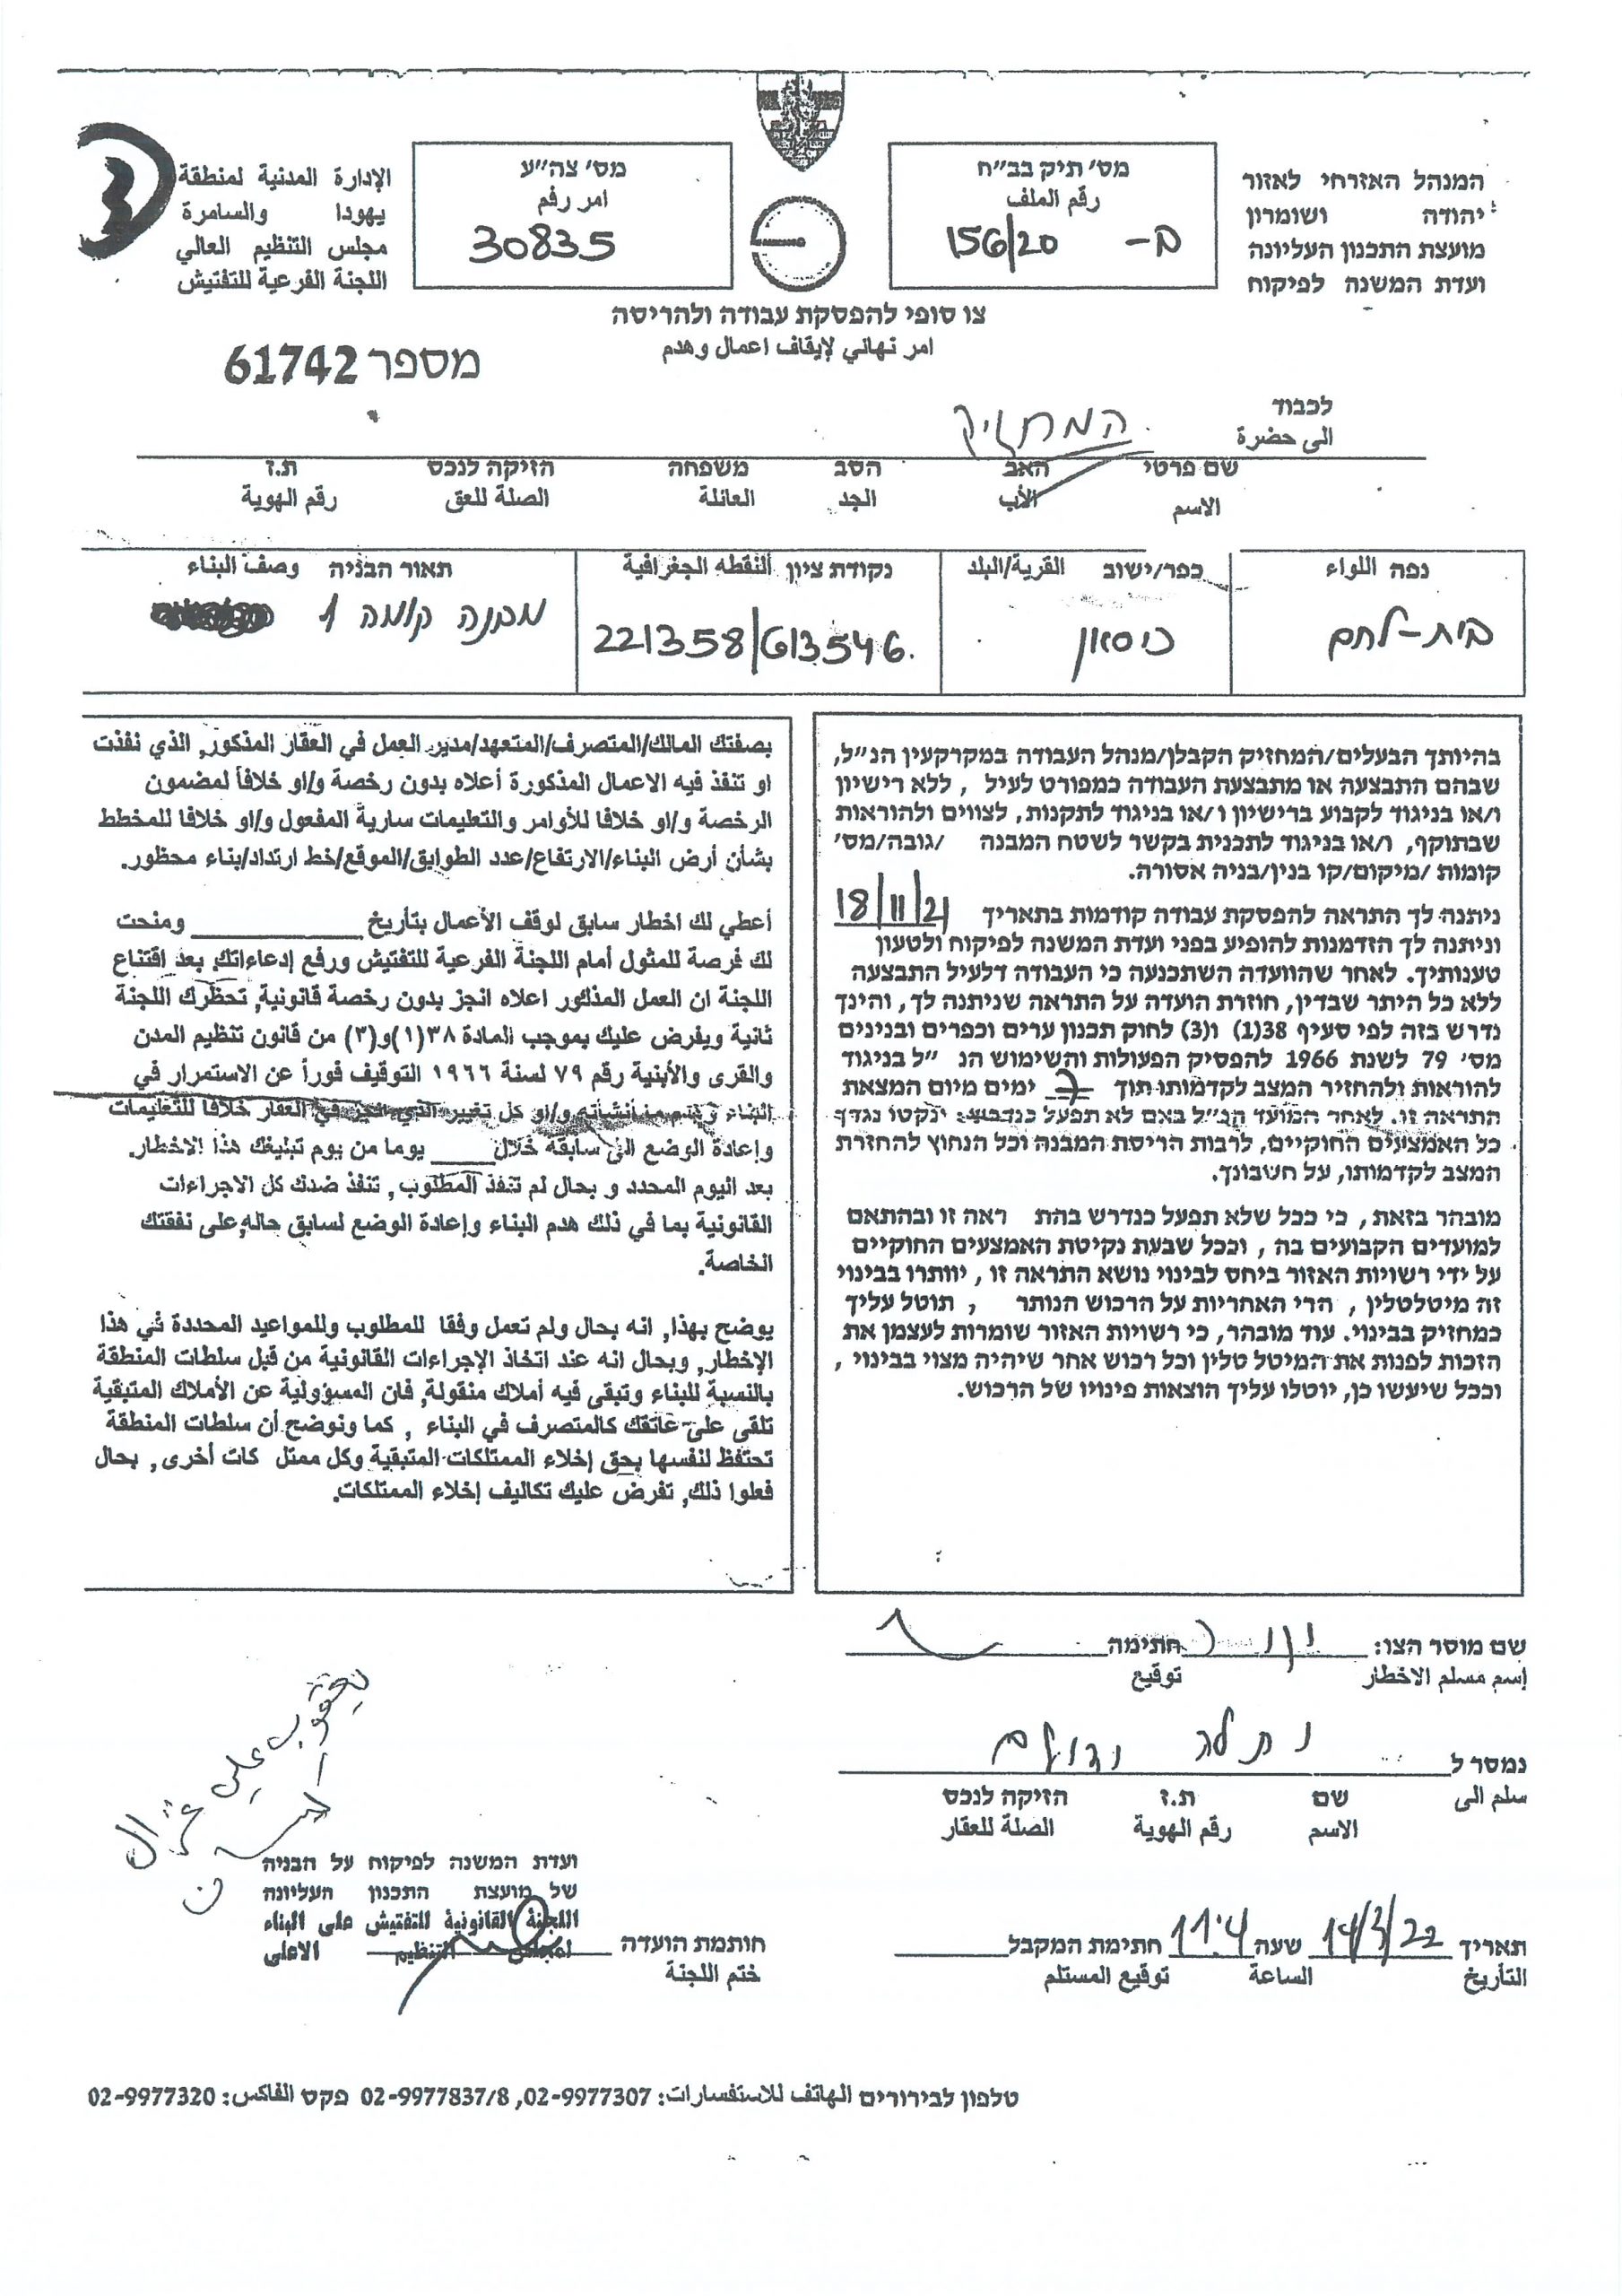 המנהל האזרחי לאזור
יהודה ושומרון
מועצת התכנון העליונה
ועדת המשנה לפיקוח
מס׳ תיק בב״ח
رقم الملف
ב- 156/20
מס׳ צה״ע
امر رقم
30835
الإدارة المدنية لمنطقة
يهودا والسامرة
مجلس التنظيم العالي
اللجنة الفرعية للتفتيش
צו סופי להפסקת עבודה ולהריסה
امر نهائي لإيقاف اعمال وهدم
מספר 61742
לכבוד
الى حضرة
המחזיק
שם פרטי האב הסב משפחה הזיקה לנכס ת.ז
الاسم الأب الجد العائلة الصلة للعق رقم الهوية
נפה اللواء
בית-לחם
כפר/ישוב القرية/البلد
כיסאן
נקודת ציון النقطه الجغرافية
221358/613546
תאור הבניה وصف البناء
מבנה קומה 1
בהיותך הבעלים/המחזיק הקבלן/מנהל העבודה במקרקעין הנ״ל,
שבהם התבצעה או מתבצעת העבודה כמפורט לעיל , ללא רישיון
ו/או בניגוד לקבוע ברישיון ו/או בניגוד לתקנות, לצווים ולהוראות
שבתוקף, ו/או בניגוד לתכנית בקשר לשטח המבנה /גובה/מס׳
קומות /מיקום/קו בנין/בניה אסורה.
ניתנה לך התראה להפסקת עבודה קודמות בתאריך 18/11/21
וניתנה לך הזדמנות להופיע בפני ועדת המשנה לפיקוח ולטעון
טענותיך. לאחר שהוועדה השתכנעה כי העבודה דלעיל התבצעה
ללא כל היתר שבדין, חוזרת הועדה על התראה שניתנה לך, והינך
נדרש בזה לפי סעיף 38(1) ו(3) לחוק תכנון ערים וכפרים ובנינים
מס׳ 79 לשנת 1966 להפסיק הפעולות והשימוש הנ ״ל בניגוד
להוראות ולהחזיר המצב לקדמותו תוך 7 ימים מיום המצאת
התראה זו. לאחר המועד הנ״ל באם לא תפעל כנדרש, ינקטו נגדך
כל האמצעים החוקיים, לרבות הריסת המבנה וכל הנחוץ להחזרת
המצב לקדמותו, על חשבונך.
מובהר בזאת, כי ככל שלא תפעל כנדרש בהת ראה זו ובהתאם
למועדים הקבועים בה, וככל שבעת נקיטת האמצעים החוקיים
על ידי רשויות האזור ביחס לבינוי נושא התראה זו, יוותרו בבינוי
זה מיטלטלין, הרי האחריות על הרכוש הנותר , תוטל עליך
כמחזיק בבינוי. עוד מובהר, כי רשויות האזור שומרות לעצמן את
הזכות לפנות את המיטל טלין וכל רכוש אחר שיהיה מצוי בבינוי,
וככל שיעשו כן, יוטלו עליך הוצאות פינויו של הרכוש.
بصفتك المالك/المتصرف/المتعهد/مدير العمل في العقار المذكور, الذي نفذت
او تنفذ فيه الاعمال المذكورة أعلاه بدون رخصة و/او خلافاً لمضمون
الرخصة و/او خلافا للأوامر والتعليمات سارية المفعول و/او خلافا للمخطط
بشأن أرض البناء/الارتفاع/عدد الطوابق/الموقع/خط ارتداد/بناء محظور.
أعطي لك اخطار سابق لوقف الأعمال بتأريخ ومنحت
لك فرصة للمثول أمام اللجنة الفرعية للتفتيش ورفع إدعاءاتك. بعد اقتناع
اللجنة ان العمل المذكور اعلاه انجز بدون رخصة قانونية, تحظرك اللجنة
ثانية ويفرض عليك بموجب المادة ٣٨(١)و(٣) من قانون تنظيم المدن
والقرى والأبنية رقم ٧٩ لسنة ١٩٦٦ التوقيف فوراً عن الاستمرار في
البناء و/او كل تغيير الذي العقار خلافا للتعليمات
وإعادة الوضع الى سابقه خلال يوما من يوم تبليغك هذا الاخطار.
بعد اليوم المحدد و بحال لم تنفذ المطلوب, تنفذ ضدك كل الاجراءات
القانونية بما في ذلك هدم البناء وإعادة الوضع لسابق حاله, على نفقتك
الخاصة.
يوضح بهذا, انه بحال ولم تعمل وفقا للمطلوب وللمواعيد المحددة في هذا
الإخطار, وبحال انه عند اتخاذ الإجراءات القانونية من قبل سلطات المنطقة
بالنسبة للبناء وتبقى فيه أملاك منقولة, فان المسؤولية عن الأملاك المتبقية
تلقى على عاتقك كالمتصرف في البناء , كما ونوضح أن سلطات المنطقة
تحتفظ لنفسها بحق إخلاء الممتلكات المتبقية وكل ممتل كات أخرى, بحال
فعلوا ذلك, تفرض عليك تكاليف إخلاء الممتلكات.
שם מוסר הצו: חתימה
إسم مسلم الاخطار توقيع
נמסר ל
سلم الى
שם ת.ז הזיקה לנכס
الاسم رقم الهوية الصلة للعقار
תאריך 14/3/22 שעה חתימת המקבל
التأريخ الساعة توقيع المستلم
يعقوب علي غزال
ועדת המשנה לפיקוח על הבניה
של מועצת התכנון העליונה
اللجنة القانونية للتفتيش على البناء
التنظيم الاعلى
חותמת הועדה
ختم اللجنة
טלפון לבירורים الهاتف للاستفسارات: 02-9977307, 02-9977837/8 פקס الفاكس: 02-9977320